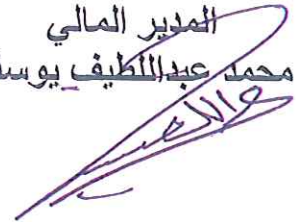 المدير المالي
محمد عبداللطيف